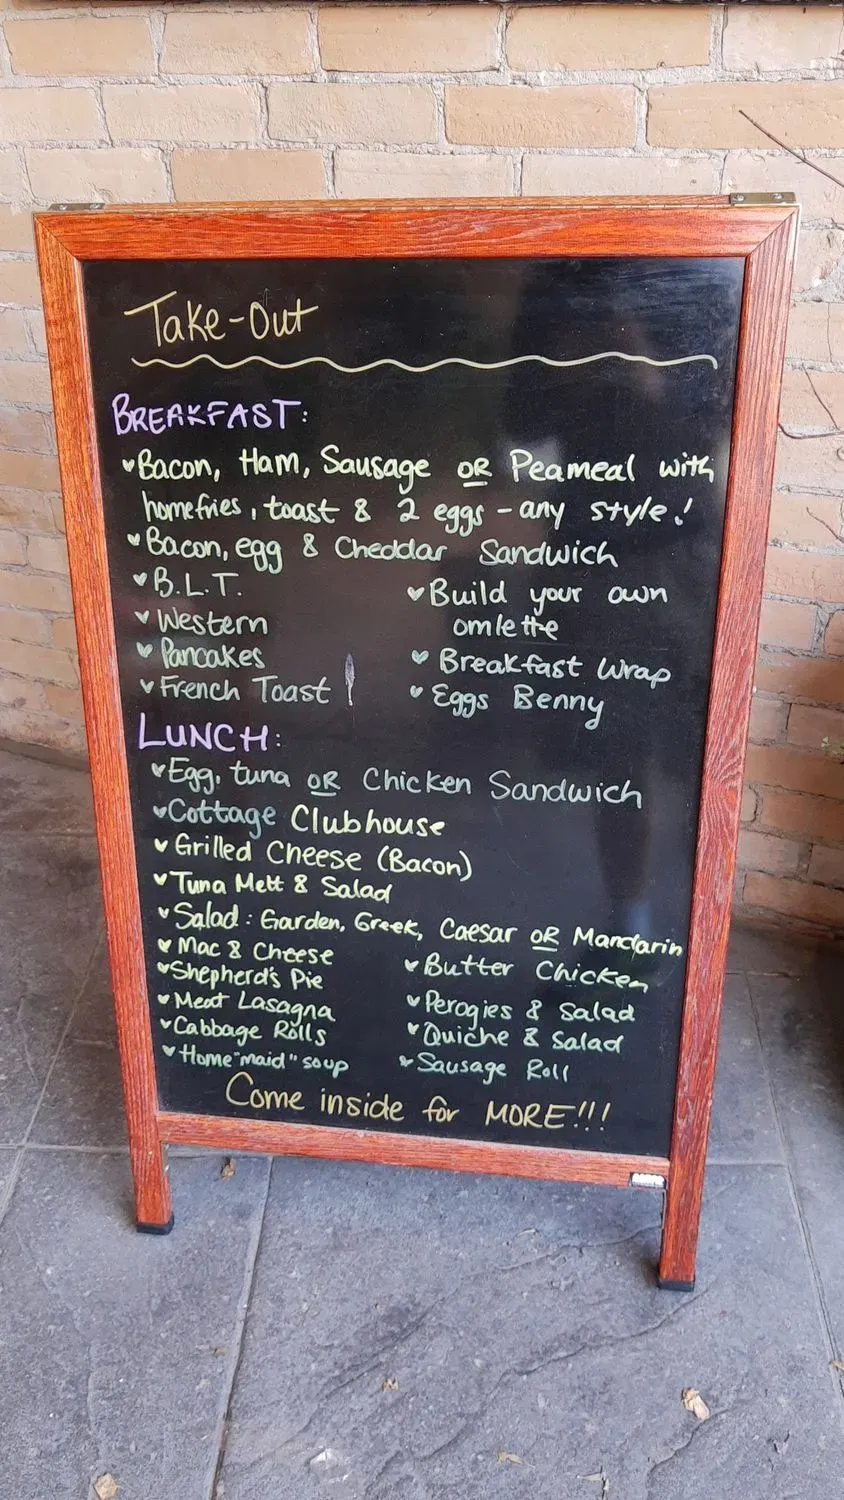 Take-Out
BREAKFAST:
Bacon, Ham, Sausage OR Peameal with
homefries, toast & 2 eggs - any style!
Bacon, egg & Cheddar Sandwich
B.L.T.
Western
Pancakes
French Toast
Build your own
omlette
Breakfast Wrap
Eggs Benny
LUNCH:
Egg, tuna OR Chicken Sandwich
Cottage Clubhouse
Grilled Cheese (Bacon)
Tuna Melt & Salad
Salad: Garden, Greek, Caesar OR Mandarin
Mac & Cheese
Shepherd's Pie
Meat Lasagna
Cabbage Rolls
Home"maid" soup
Butter Chicken
Perogies & Salad
Quiche & Salad
Sausage Roll
Come inside for MORE!!!